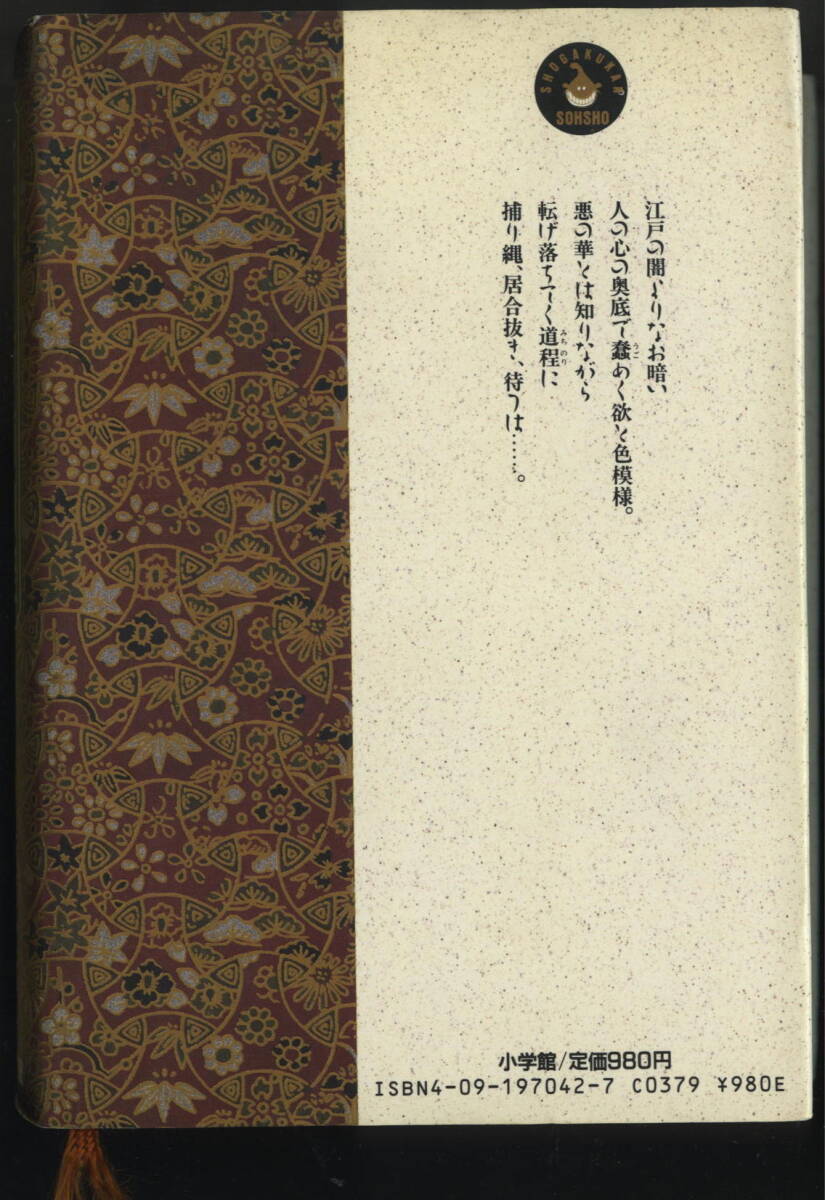 SHOGAKUKAN
SOHSHO
江戸の闇よりなお暗い
人の心の奥底で蠢めく欲と色模様。
うご
悪の華とは知りながら
転げ落ちてく道程に
みちのり
捕り縄、居合抜き、待つは……。
小学館/定価980円
ISBN4-09-197042-7 C0379 ¥980E